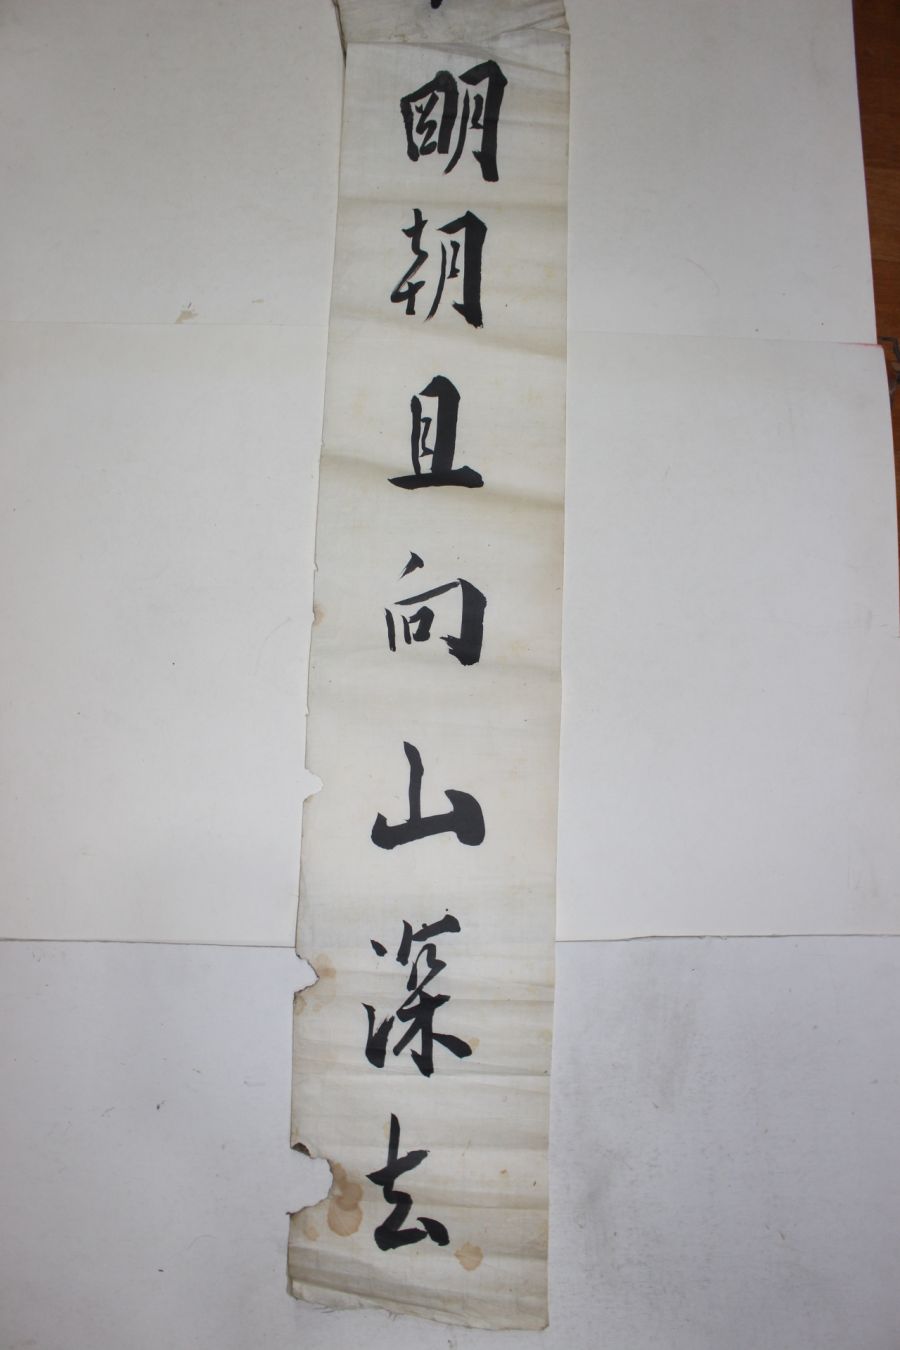 明朝且向山深去